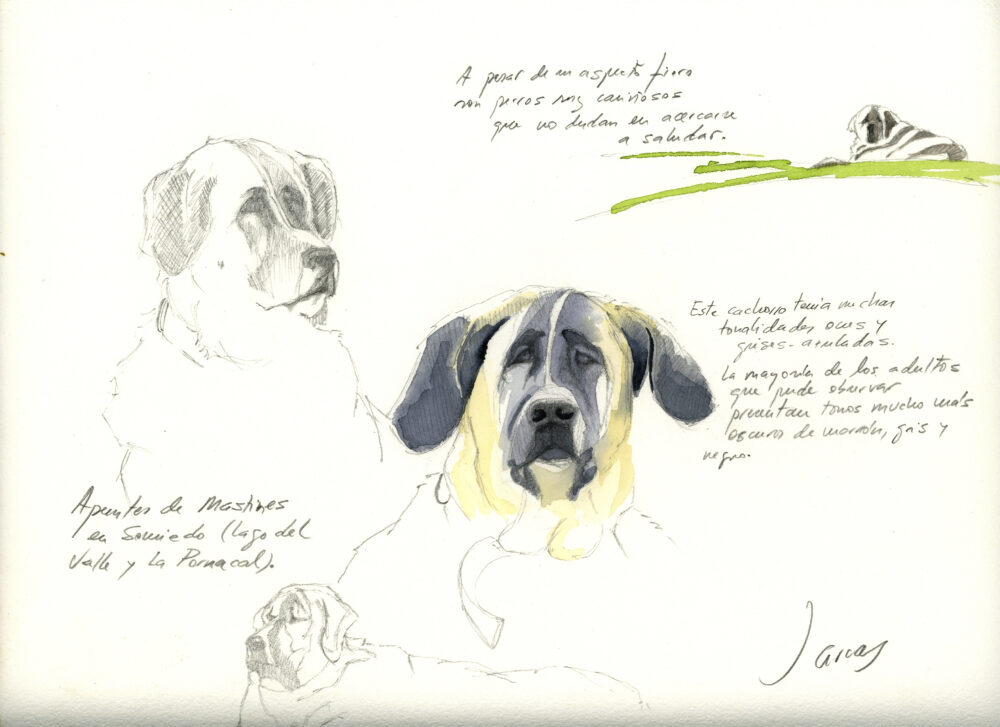 A pesar de un aspecto fiero
son perros muy cariñosos
que no dudan en acercarse
a saludar.
Este cachorro tenía muchas
tonalidades ocres y
grises-azuladas.
La mayoría de los adultos
que pude observar
presentan tonos mucho más
oscuros de marrón, gris y
negro.
Apuntes de Mastines
en Somiedo (Lago del
Valle y La Pornacal).
J Arcas